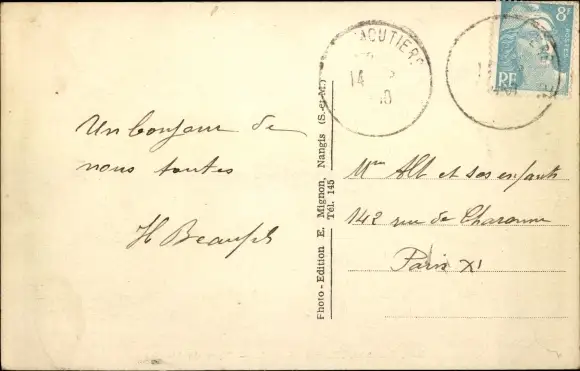 Un bonjour de
nous toutes
H Beaufils
Photo - Edition E. Mignon, Nangis (S.-et-M.)
Tél. 145
MOUTIERS
14
8F
POSTES
RF
Mme Alb et ses enfants
142 rue de Charonne
Paris XI